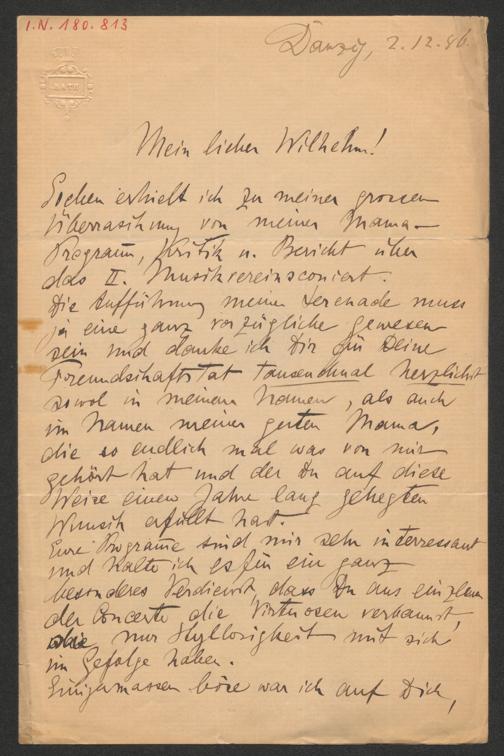 I.N. 180.813
Danzig, 2.12.86.
Mein lieber Wilhelm!
Soeben erhielt ich zu meiner grossen
Überraschung von meiner Mama
Programm, Kritik u. Bericht über
das II. Musikvereinsconcert.
Die Aufführung meiner Serenade muss
ja eine ganz vorzügliche gewesen
sein und danke ich Dir für Deine
Freundschaftstat tausendmal herzlichst
sowol in meinem Namen, als auch
im Namen meiner guten Mama,
die so endlich mal was von mir
gehört hat und der Du auf diese
Weise einen Jahre lang gehegten
Wunsch erfüllt hast.
Eure Programme sind mir sehr interressant
und halte ich es für ein ganz
besonderes Verdienst, dass Du aus
der Concerte die Virtuosen verbannst,
die nur Styllosigkeit mit sich
im Gefolge haben.
Einigermassen böse war ich auf Dich,